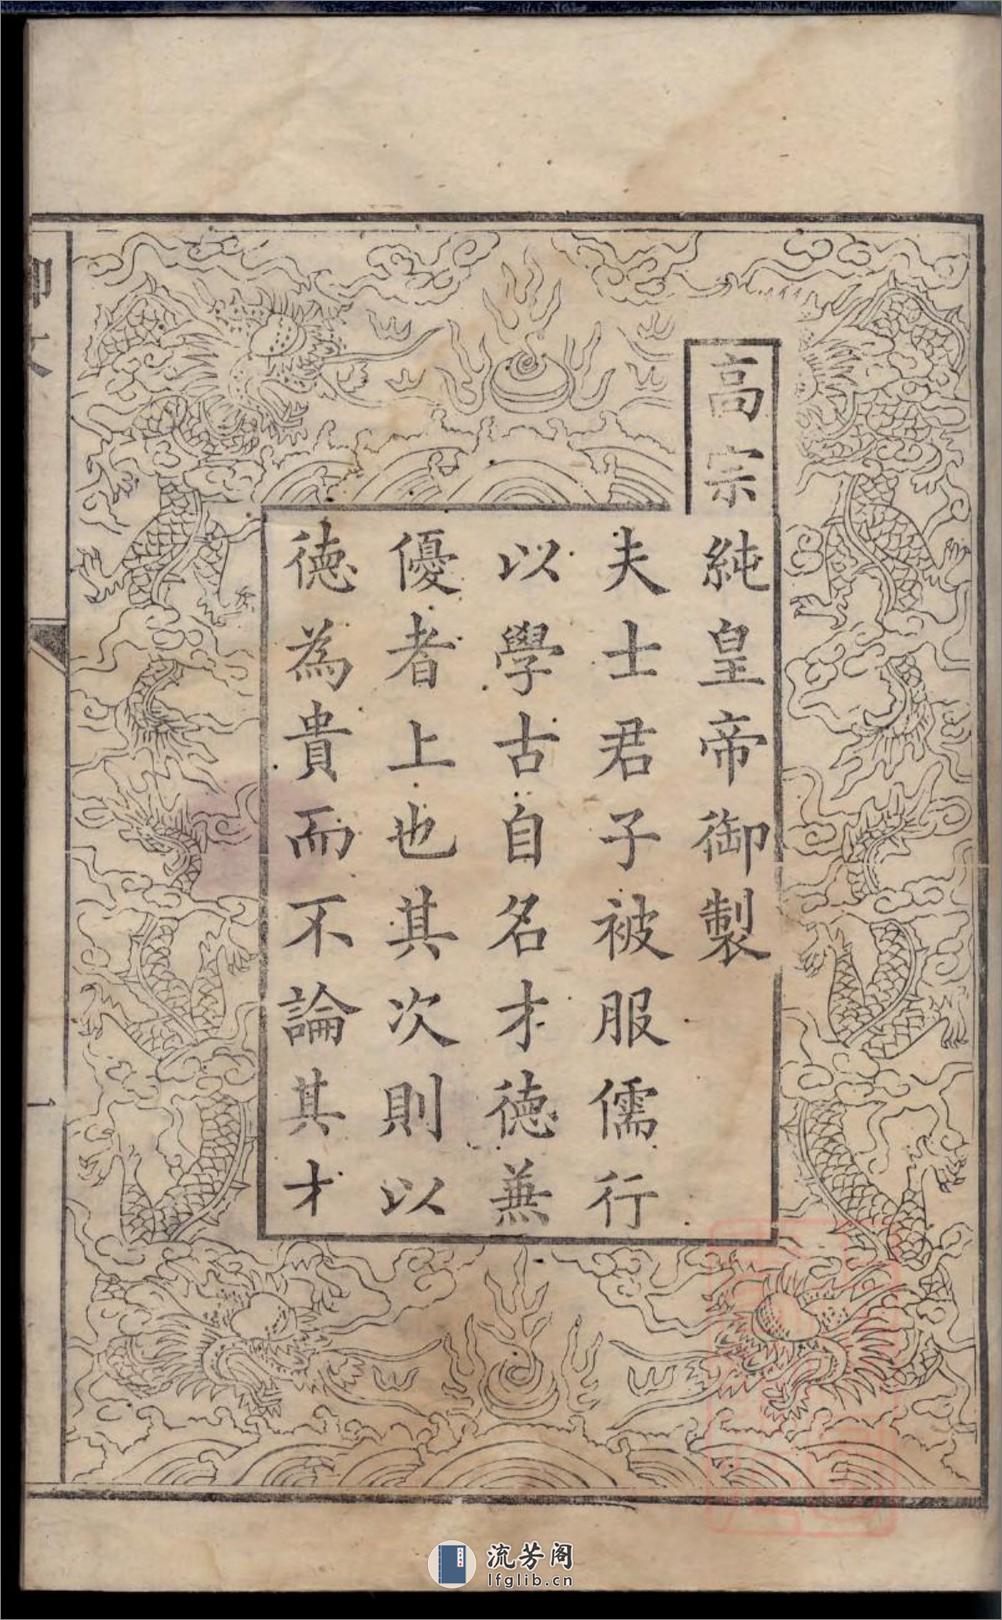 高宗純皇帝御製
夫士君子被服儒行
以學古自名才德兼
優者上也其次則以
德為貴而不論其才
御文
一
流芳阁
lfglib.cn